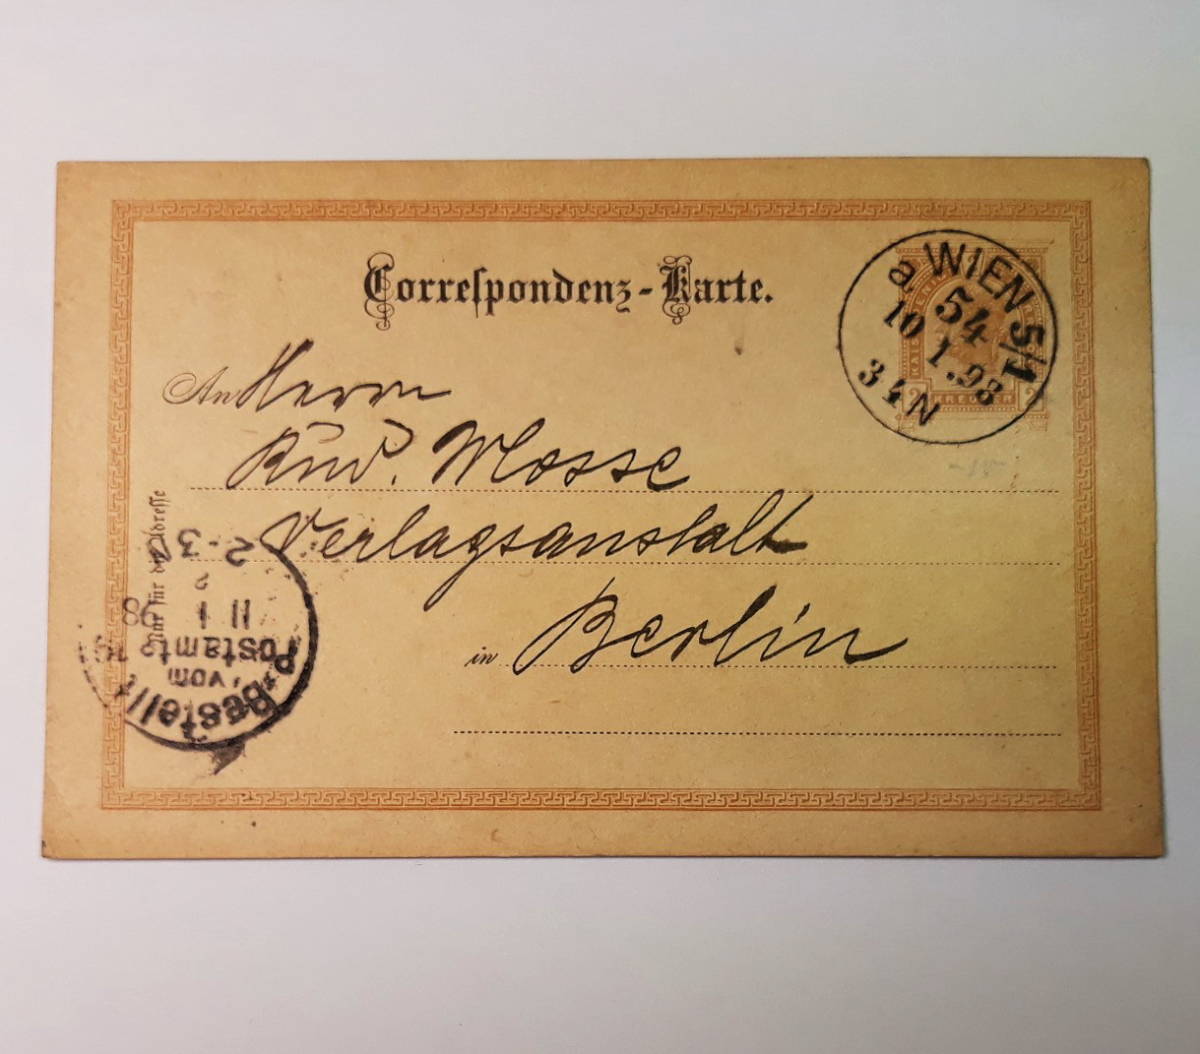 Correspondenz-Karte.
a WIEN 5/1
54
10 1.98
3 4 N
KREUZER
2 2
An Herrn
Rud. Mosse
Verlagsanstalt
in Berlin
Nur für die Adresse
Bestellt
vom
Postamte
11 1 98
2-3